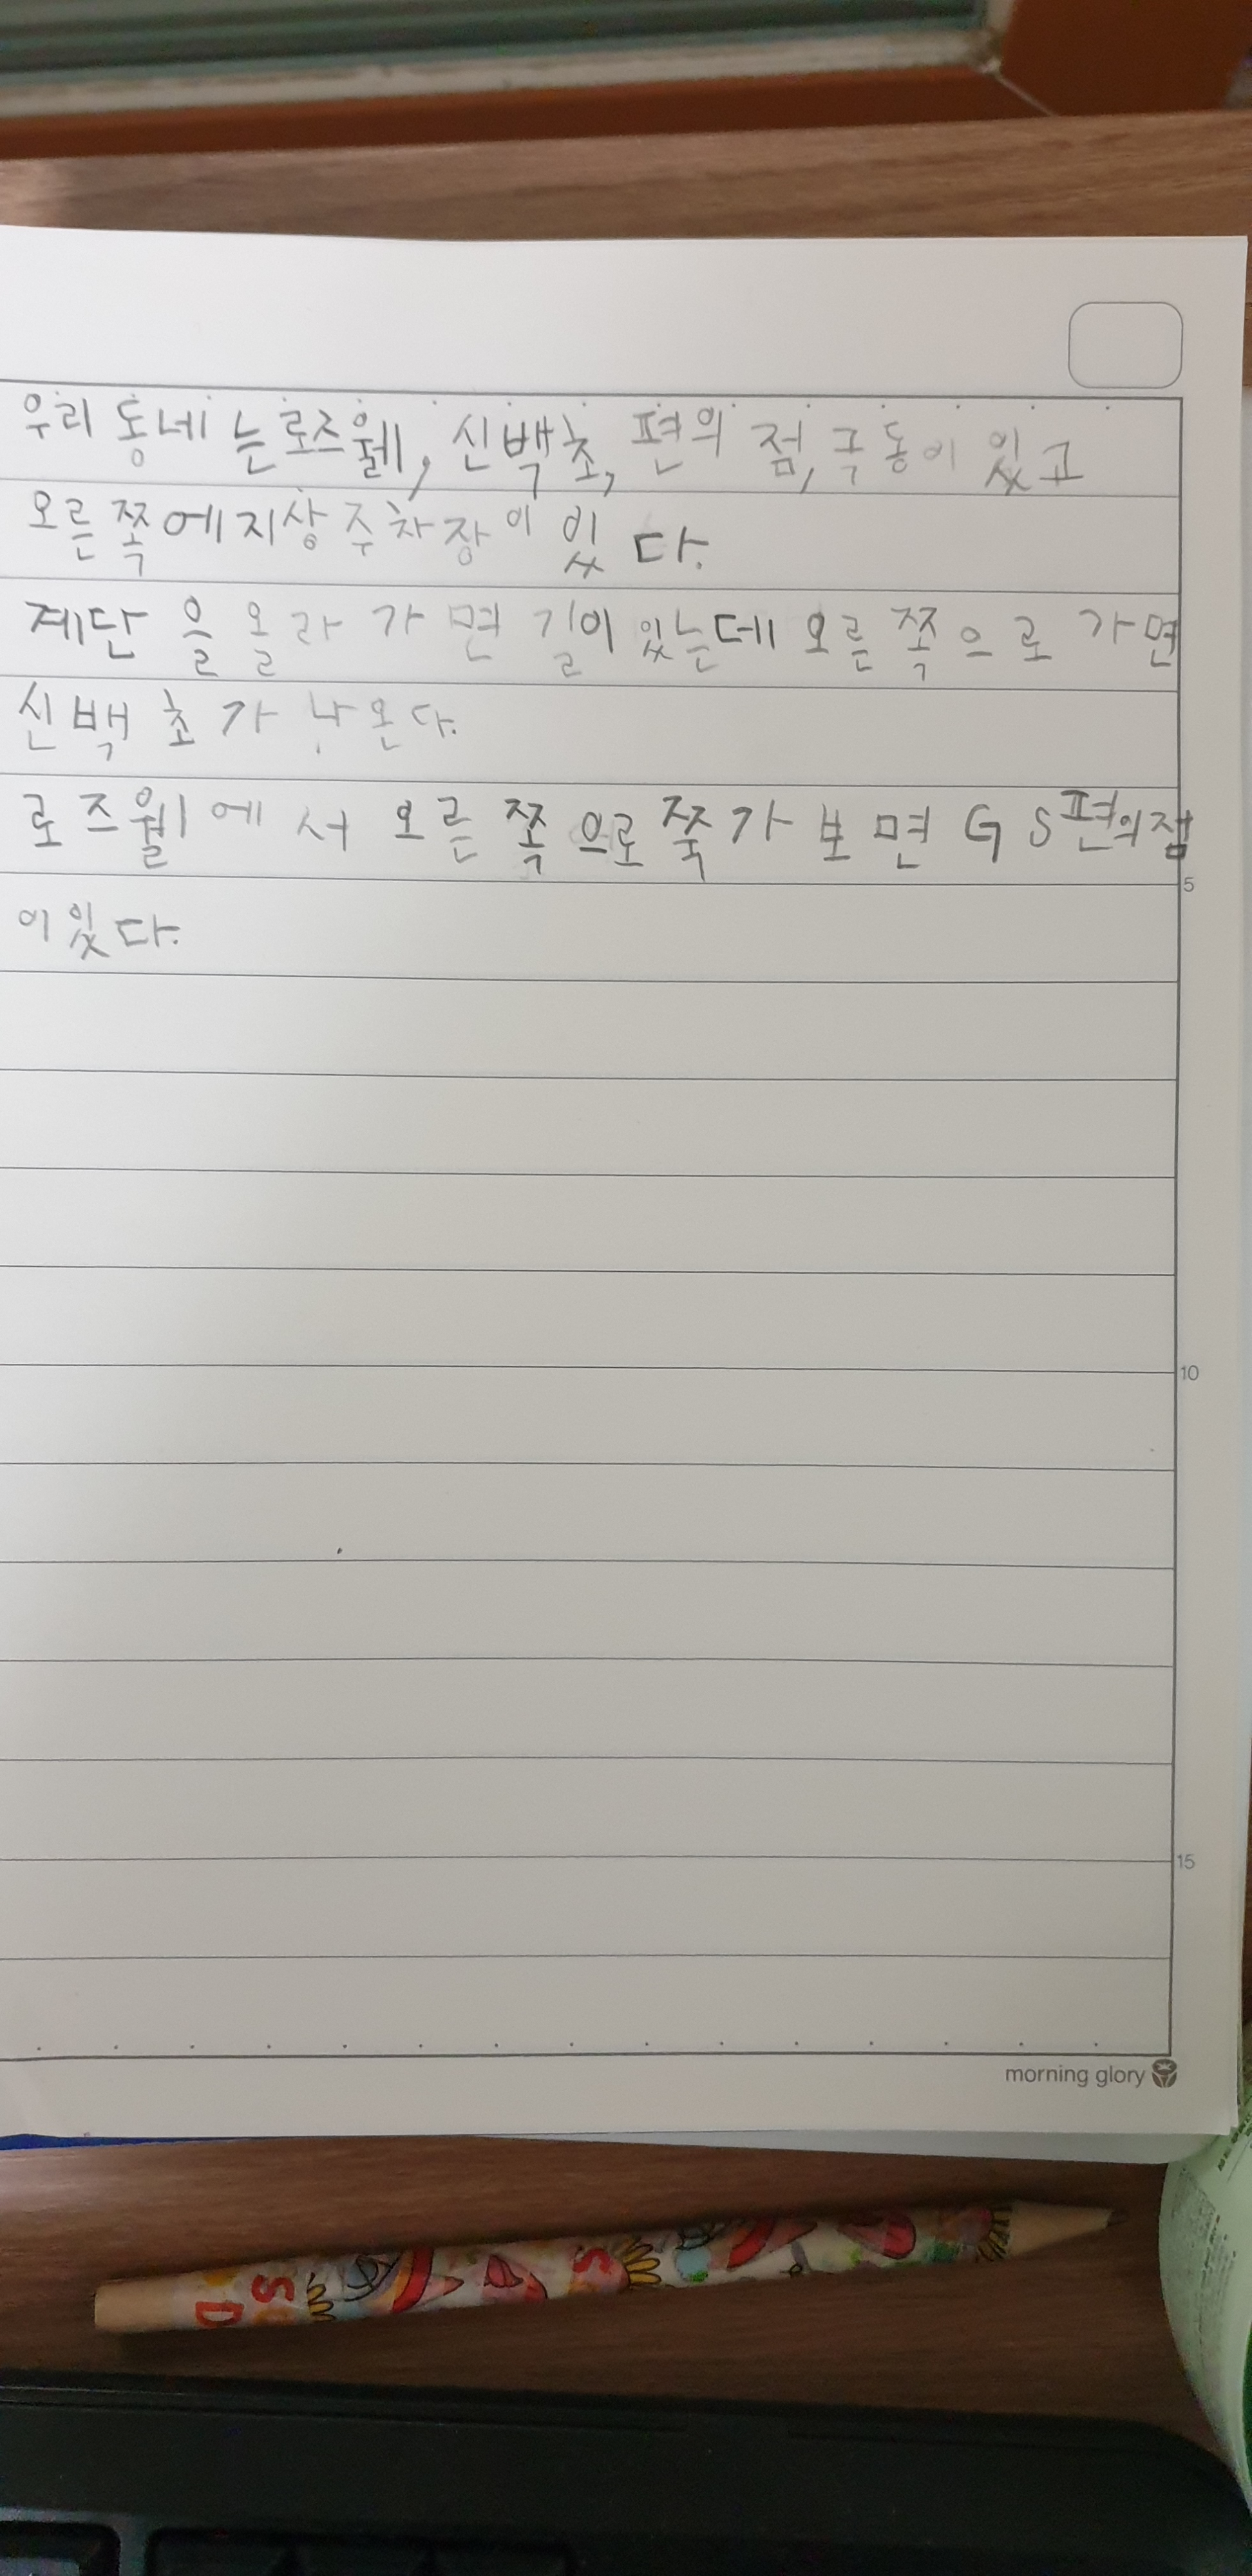 우리 동네는 로즈웰, 신백초, 편의점, 구동이 있고
오른쪽에 지상주차장이 있다.
계단을 올라가면 길이 있는데 오른쪽으로 가면
신백초가 나온다.
로즈웰에서 오른쪽으로 쭉 가보면 GS편의점
5
이 있다.
10
15
morning glory